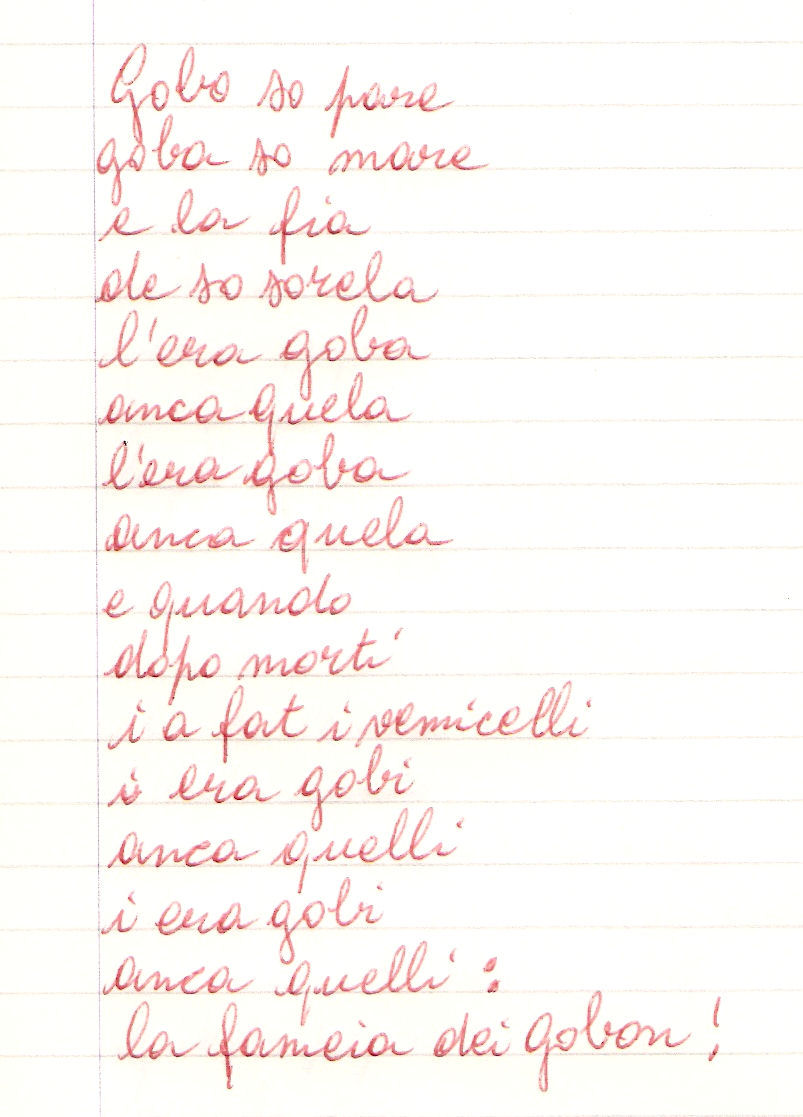 Gobo so pare
goba so mare
e la fia
de so sorela
l'era goba
anca quela
l'era goba
anca quela
e quando
dopo morti
i a fat i vemicelli
i era gobi
anca quelli
i era gobi
anca quelli :
la fameia dei gobon !